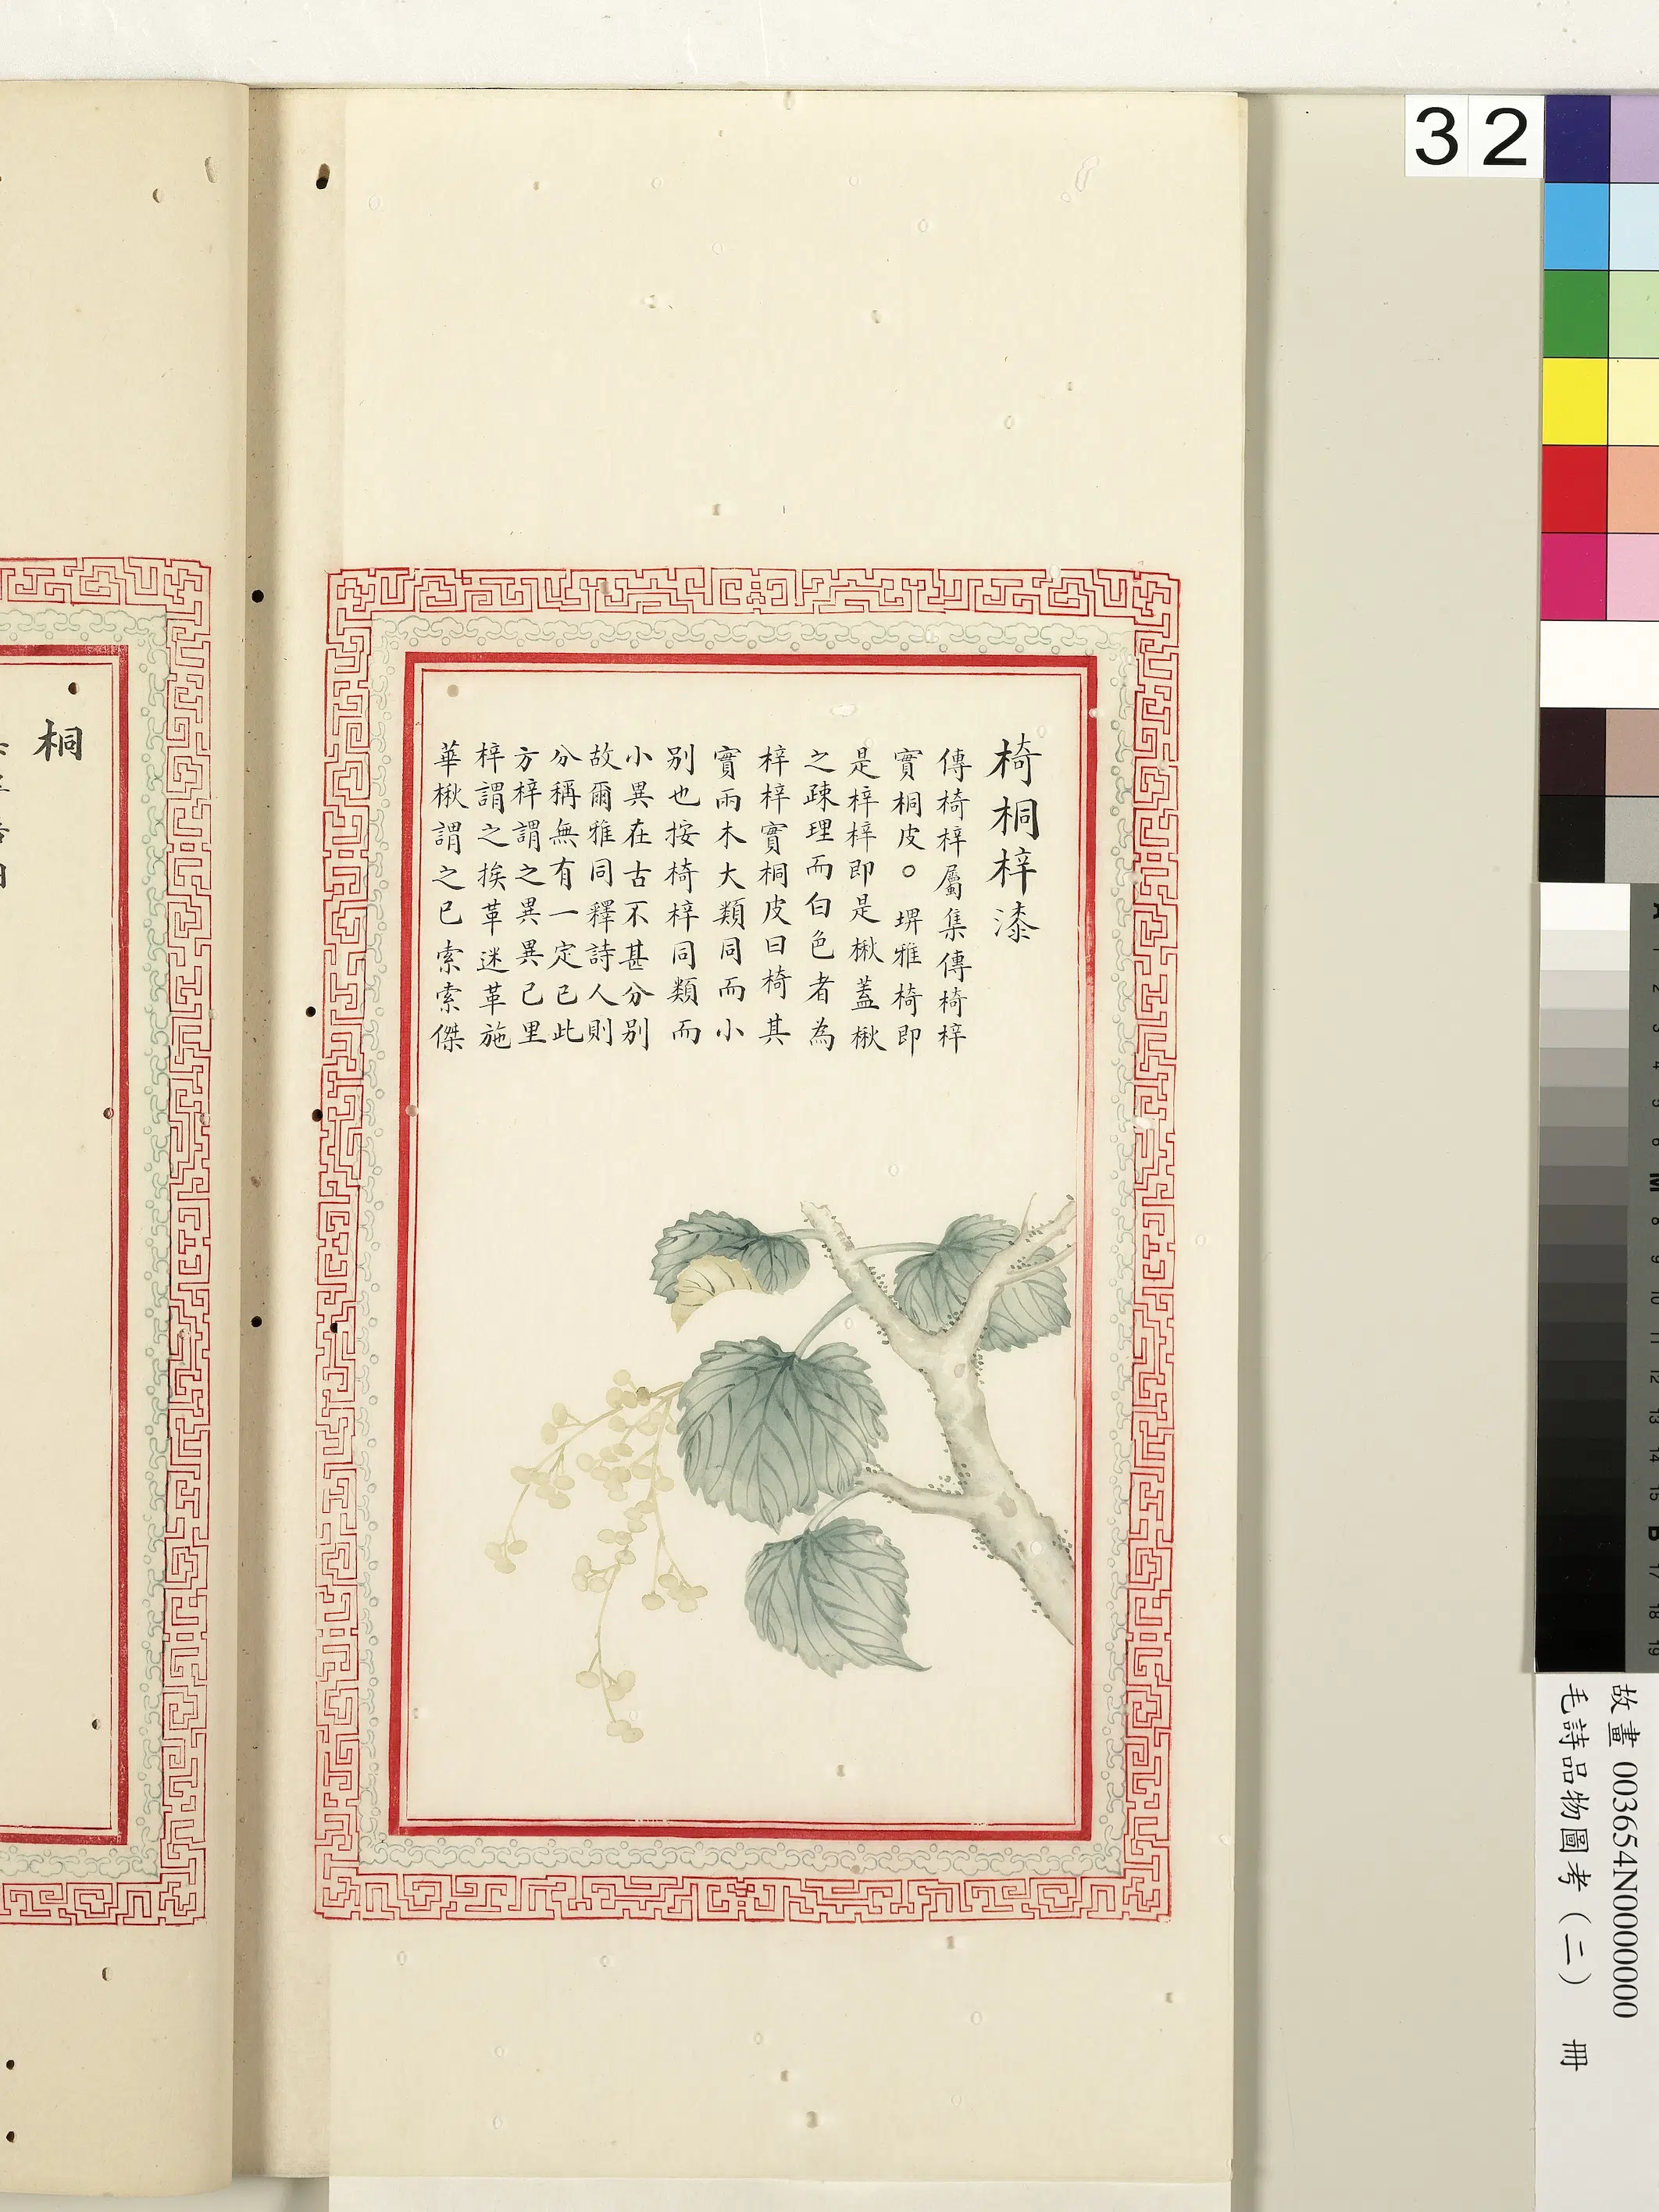 椅桐梓漆
傳椅梓屬集傳椅梓
實桐皮。埤雅椅即
是梓梓即是楸蓋楸
之疎理而白色者為
梓梓實桐皮曰椅其
實兩木大類同而小
别也按椅梓同類而
小異在古不甚分别
故爾雅同釋詩人則
分稱無有一定已此
方梓謂之異異己里
梓謂之挨革迷革施
華楸謂之已索索傑
桐
32
故畫 003654N000000000
毛詩品物圖考（二） 冊